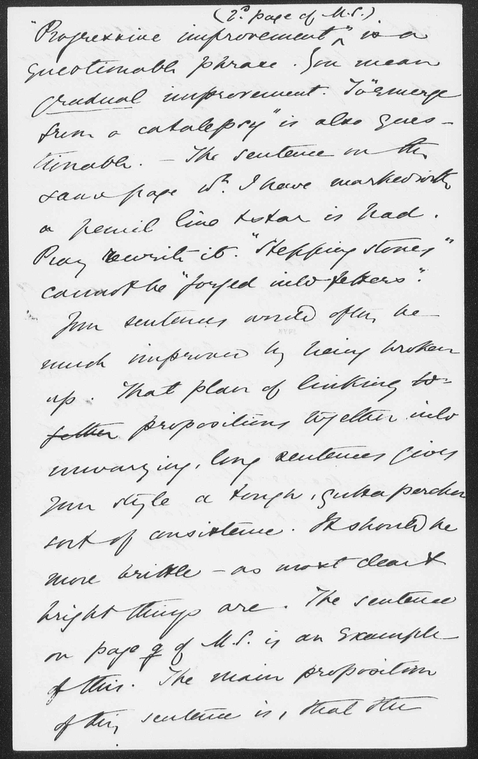 (2ᵈ page of M.S.)
"Progressive improvement" is a
questionable phrase. You mean
gradual improvement. To "emerge
from a catalepsy" is also ques-
tionable. – The sentence on the
same page wʰ I have marked with
a pencil line & star is bad.
Pray rewrite it. "Stepping stones"
cannot be "forged into fetters".
Your sentences would often be
much improved by being broken
up. That plan of linking to-
gether propositions together into
unvarying, long sentences gives
your style a tough, gutta percha
sort of consistence. It should be
more brittle – as most clear &
bright things are. The sentence
on page 9 of M.S. is an example
of this. The main proposition
of this sentence is, that the